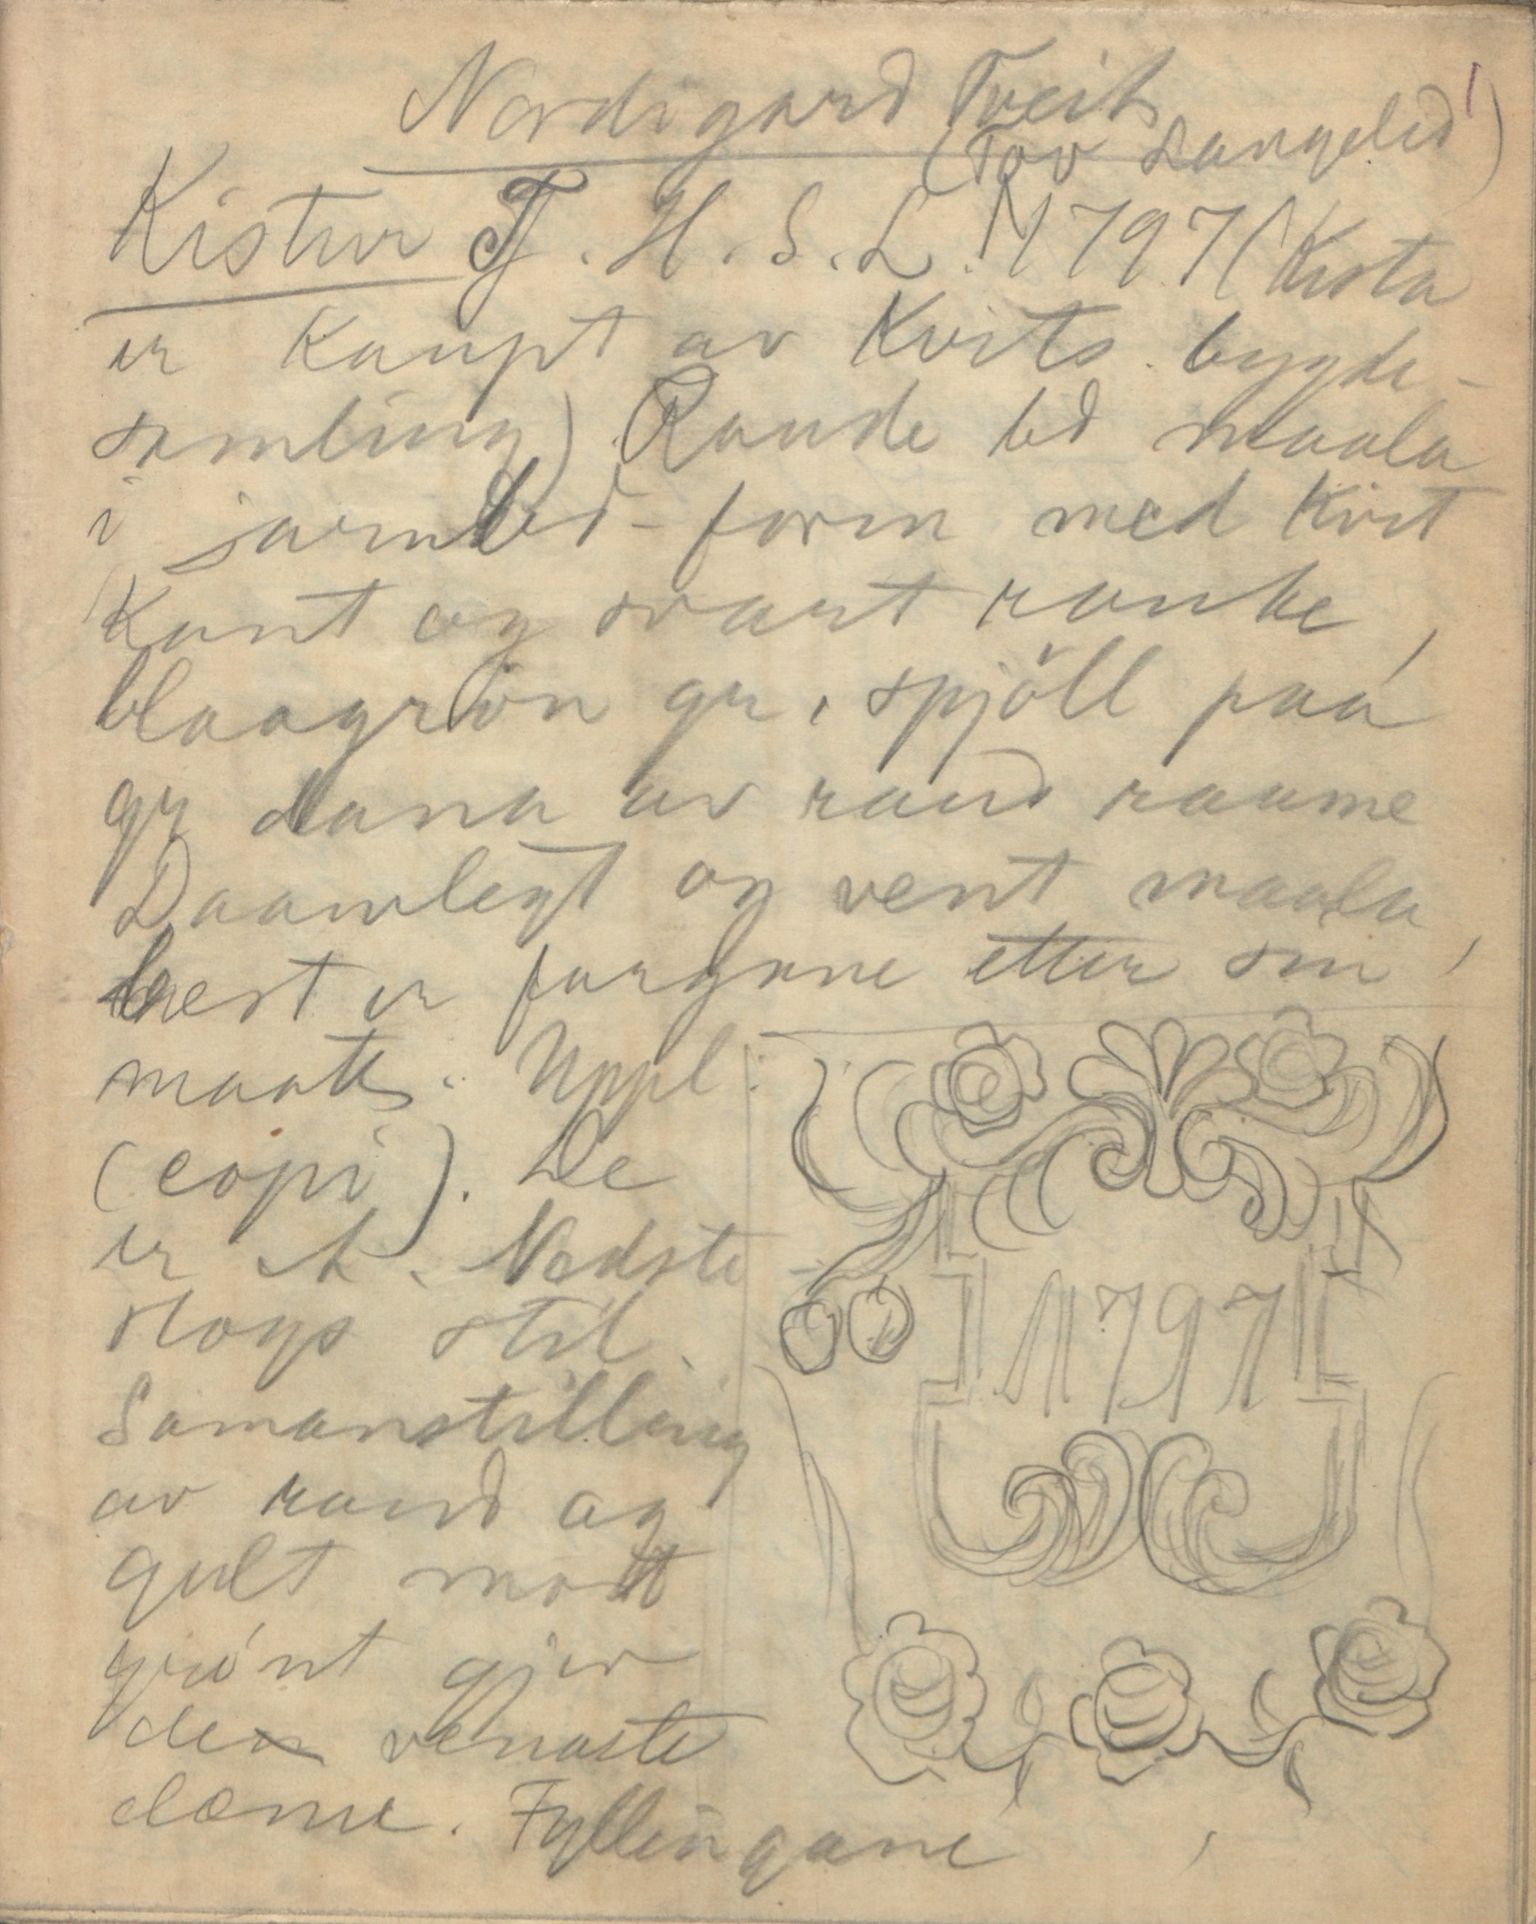 Nordigard Tveit
(Tov Langelid)
Kistur T. H. S. L. 1797 (Kista
er Kaupt av Kvits. bygde-
samling) Raude bd maala
i jarnbd-form med kvit
Kant og svart ranke,
blaagrön gr, spjöll paa
gr dana av raud raame
Daamlegt og vent maala,
best er fargane etter sin
maate. Uppl:
(copi). De
er A. Nedste
stogs stil.
Samanstilling
av raud og
gult mott
grönt gjev
den venaste
dæme. Fyllingane
1797